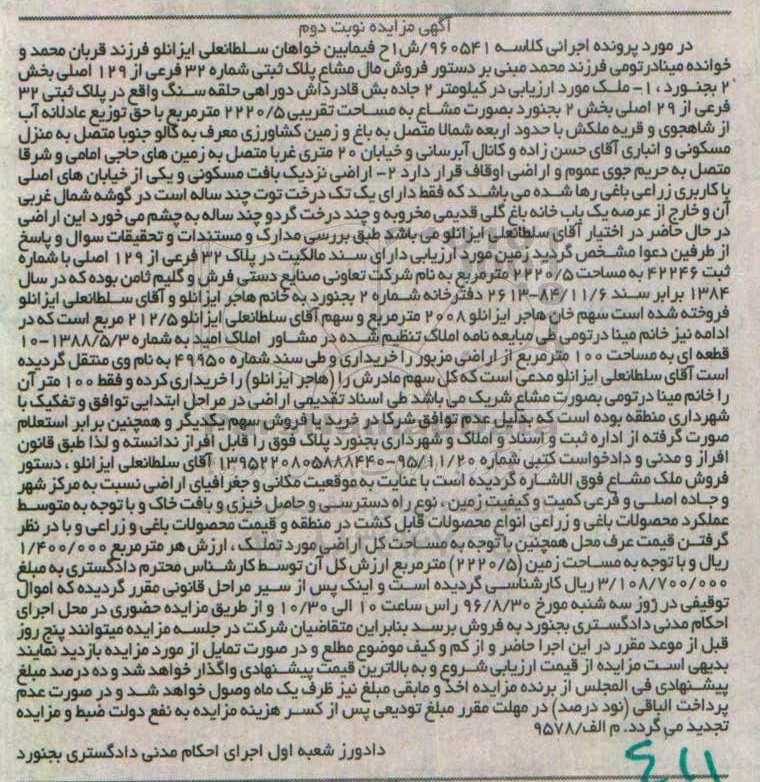 آگهی مزایده نوبت دوم
در مورد پرونده اجرائی کلاسه ۹۶۰۵۴۱/ش۱ح فیمابین خواهان سلطانعلی ایزانلو فرزند قربان محمد و
خوانده مینادرتومی فرزند محمد مبنی بر دستور فروش مال مشاع پلاک ثبتی شماره ۳۲ فرعی از ۱۲۹ اصلی بخش
۲ بجنورد ، ۱- ملک مورد ارزیابی در کیلومتر ۲ جاده بش قادرداش دوراهی حلقه سنگ واقع در پلاک ثبتی ۳۲
فرعی از ۲۹ اصلی بخش ۲ بجنورد بصورت مشاع به مساحت تقریبی ۲۲۲۰/۵ مترمربع با حق توزیع عادلانه آب
از شاهجوی و قریه ملکش با حدود اربعه شمالا متصل به باغ و زمین کشاورزی معرف به گالو جنوبا متصل به منزل
مسکونی و انباری آقای حسن زاده و کانال آبرسانی و خیابان ۲۰ متری غربا متصل به زمین های حاجی امامی و شرقا
متصل به حریم جوی عموم و اراضی اوقاف قرار دارد ۲- اراضی نزدیک بافت مسکونی و یکی از خیابان های اصلی
با کاربری زراعی باغی رها شده می باشد که فقط دارای یک تک درخت توت چند ساله است در گوشه شمال غربی
آن و خارج از عرصه یک باب خانه باغ گلی قدیمی مخروبه و چند درخت گردو چند ساله به چشم می خورد این اراضی
در حال حاضر در اختیار آقای سلطانعلی ایزانلو می باشد طبق بررسی مدارک و مستندات و تحقیقات سوال و پاسخ
از طرفین دعوا مشخص گردید زمین مورد ارزیابی دارای سند مالکیت در پلاک ۳۲ فرعی از ۱۲۹ اصلی با شماره
ثبت ۴۲۲۴۶ به مساحت ۲۲۲۰/۵ مترمربع به نام شرکت تعاونی صنایع دستی فرش و گلیم ثامن بوده که در سال
۱۳۸۴ برابر سند ۸۴/۱۱/۶-۲۶۱۳ دفترخانه شماره ۲ بجنورد به خانم هاجر ایزانلو و آقای سلطانعلی ایزانلو
فروخته شده است سهم خان هاجر ایزانلو ۲۰۰۸ مترمربع و سهم آقای سلطانعلی ایزانلو ۲۱۲/۵ مربع است که در
ادامه نیز خانم مینا درتومی طی مبایعه نامه املاک تنظیم شده در مشاور املاک امید به شماره ۱۳۸۸/۵/۳-۱۰
قطعه ای به مساحت ۱۰۰ مترمربع از اراضی مزبور را خریداری و طی سند شماره ۴۹۹۵۰ به نام وی منتقل گردیده
است آقای سلطانعلی ایزانلو مدعی است که کل سهم مادرش را (هاجر ایزانلو) را خریداری کرده و فقط ۱۰۰ متر آن
را خانم مینا درتومی بصورت مشاع شریک می باشد طی اسناد تقدیمی اراضی در مراحل ابتدایی توافق و تفکیک با
شهرداری منطقه بوده است که بدلیل عدم توافق شرکا در خرید یا فروش سهم یکدیگر و همچنین برابر استعلام
صورت گرفته از اداره ثبت و اسناد و املاک و شهرداری بجنورد پلاک فوق را قابل افراز ندانسته و لذا طبق قانون
افراز و مدنی و دادخواست کتبی شماره ۹۵/۱۱/۲۰-۱۳۹۵۲۲۰۸۰۵۸۸۸۴۴۰ آقای سلطانعلی ایزانلو ، دستور
فروش ملک مشاع فوق الاشاره گردیده است با عنایت به موقعیت مکانی و جغرافیای اراضی نسبت به مرکز شهر
و جاده اصلی و فرعی کمیت و کیفیت زمین ، نوع راه دسترسی و حاصل خیزی و بافت خاک و با توجه به متوسط
عملکرد محصولات باغی و زراعی انواع محصولات قابل کشت در منطقه و قیمت محصولات باغی و زراعی و با در نظر
گرفتن قیمت عرف محل همچنین با توجه به مساحت کل اراضی مورد تملک ، ارزش هر مترمربع ۱/۴۰۰/۰۰۰
ریال و با توجه به مساحت زمین (۲۲۲۰/۵) مترمربع ارزش کل آن توسط کارشناس محترم دادگستری به مبلغ
۳/۱۰۸/۷۰۰/۰۰۰ ریال کارشناسی گردیده است و اینک پس از سیر مراحل قانونی مقرر گردیده که اموال
توقیفی در روز سه شنبه مورخ ۹۶/۸/۳۰ راس ساعت ۱۰ الی ۱۰/۳۰ و از طریق مزایده حضوری در محل اجرای
احکام مدنی دادگستری بجنورد به فروش برسد بنابراین متقاضیان شرکت در جلسه مزایده میتوانند پنج روز
قبل از موعد مقرر در این اجرا حاضر و از کم و کیف موضوع مطلع و در صورت تمایل از مورد مزایده بازدید نمایند
بدیهی است مزایده از قیمت ارزیابی شروع و به بالاترین قیمت پیشنهادی واگذار خواهد شد و ده درصد مبلغ
پیشنهادی فی المجلس از برنده مزایده اخذ و مابقی مبلغ نیز ظرف یک ماه وصول خواهد شد و در صورت عدم
پرداخت الباقی (نود درصد) در مهلت مقرر مبلغ تودیعی پس از کسر هزینه مزایده به نفع دولت ضبط و مزایده
تجدید می گردد. م الف/۹۵۷۸
دادورز شعبه اول اجرای احکام مدنی دادگستری بجنورد